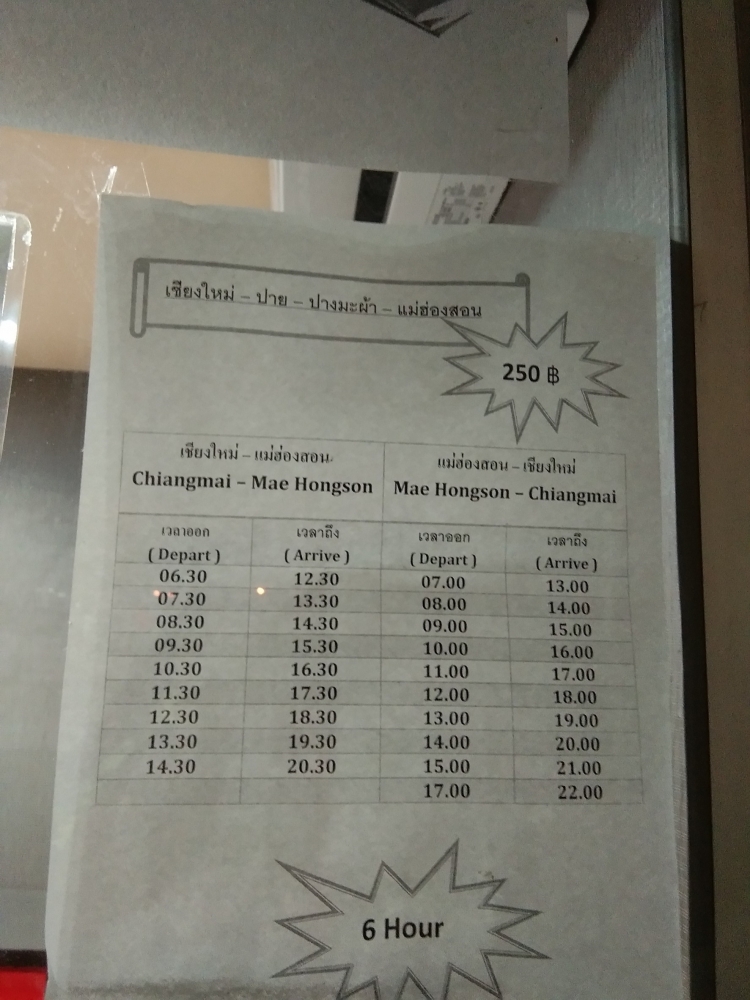 เชียงใหม่ – ปาย – ปางมะผ้า – แม่ฮ่องสอน
250 ฿
เชียงใหม่ – แม่ฮ่องสอน
Chiangmai – Mae Hongson
แม่ฮ่องสอน – เชียงใหม่
Mae Hongson – Chiangmai
เวลาออก เวลาถึง เวลาออก เวลาถึง
( Depart ) ( Arrive ) ( Depart ) ( Arrive )
06.30 12.30 07.00 13.00
07.30 13.30 08.00 14.00
08.30 14.30 09.00 15.00
09.30 15.30 10.00 16.00
10.30 16.30 11.00 17.00
11.30 17.30 12.00 18.00
12.30 18.30 13.00 19.00
13.30 19.30 14.00 20.00
14.30 20.30 15.00 21.00
17.00 22.00
6 Hour